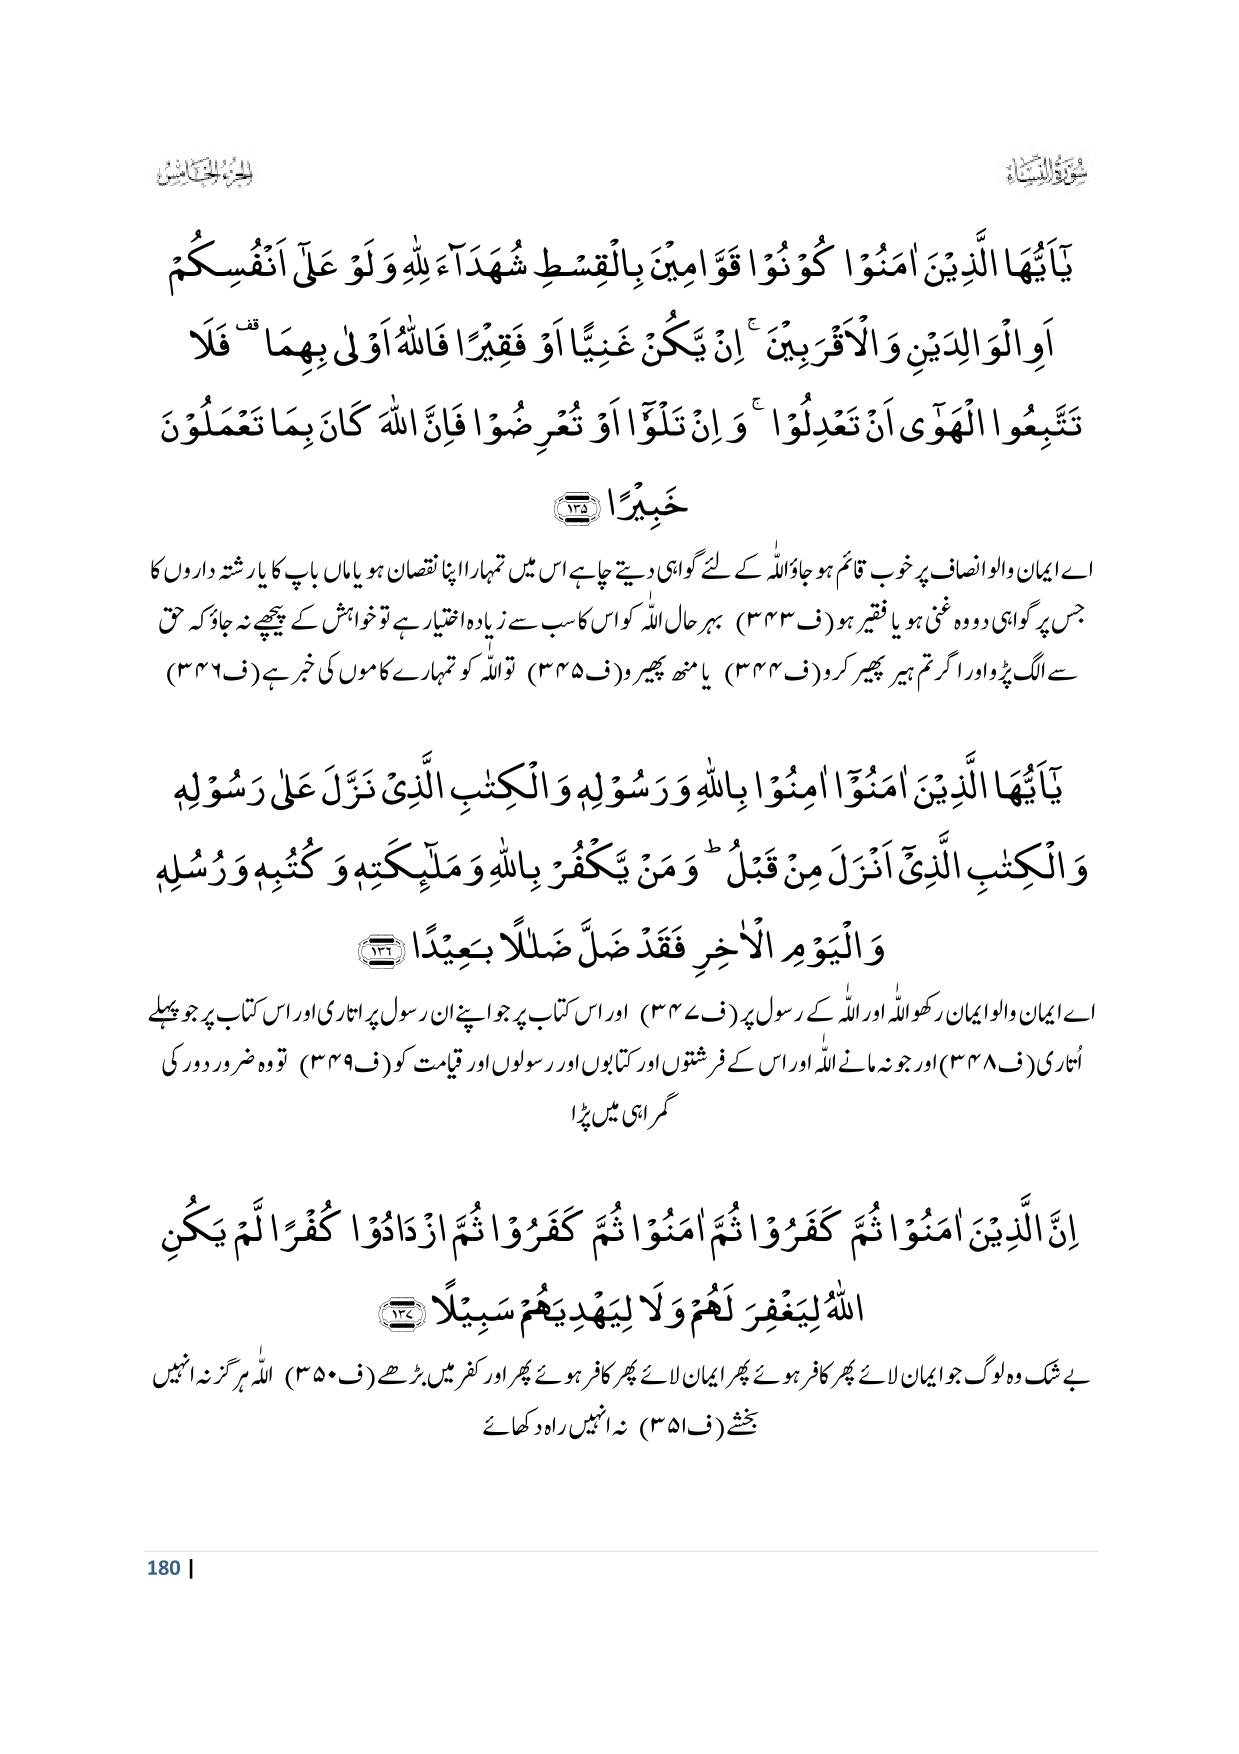 سُوْرَةُ النِّسَاء
الجزء الخامس
يٰۤاَيُّهَا الَّذِيْنَ اٰمَنُوْا كُوْنُوْا قَوَّامِيْنَ بِالْقِسْطِ شُهَدَآءَ لِلّٰهِ وَلَوْ عَلٰۤى اَنْفُسِكُمْ
اَوِ الْوَالِدَيْنِ وَالْاَقْرَبِيْنَ ۚ اِنْ يَّكُنْ غَنِيًّا اَوْ فَقِيْرًا فَاللّٰهُ اَوْلٰى بِهِمَا ۫ قف فَلَا
تَتَّبِعُوا الْهَوٰۤى اَنْ تَعْدِلُوْا ۚ وَ اِنْ تَلْوٗۤا اَوْ تُعْرِضُوْا فَاِنَّ اللّٰهَ كَانَ بِمَا تَعْمَلُوْنَ
خَبِيْرًا ﴿۱۳۵﴾
اے ایمان والو انصاف پر خوب قائم ہوجاؤ اللّٰہ کے لئے گواہی دیتے چاہے اس میں تمہارا اپنا نقصان ہو یا ماں باپ کا یا رشتہ داروں کا
جس پر گواہی دو وہ غنی ہو یا فقیر ہو (ف۳۴۳) بہرحال اللّٰہ کو اس کا سب سے زیادہ اختیار ہے تو خواہش کے پیچھے نہ جاؤ کہ حق
سے الگ پڑو اور اگر تم ہیر پھیر کرو (ف۳۴۴) یا منھ پھیرو (ف۳۴۵) تو اللّٰہ کو تمہارے کاموں کی خبر ہے (ف۳۴۶)
يٰۤاَيُّهَا الَّذِيْنَ اٰمَنُوْۤا اٰمِنُوْا بِاللّٰهِ وَ رَسُوْلِهٖ وَ الْكِتٰبِ الَّذِيْ نَزَّلَ عَلٰى رَسُوْلِهٖ
وَ الْكِتٰبِ الَّذِيْۤ اَنْزَلَ مِنْ قَبْلُ ؕ وَمَنْ يَّكْفُرْ بِاللّٰهِ وَ مَلٰٓئِكَتِهٖ وَ كُتُبِهٖ وَ رُسُلِهٖ
وَ الْيَوْمِ الْاٰخِرِ فَقَدْ ضَلَّ ضَلٰلًۢا بَعِيْدًا ﴿۱۳۶﴾
اے ایمان والو ایمان رکھو اللّٰہ اور اللّٰہ کے رسول پر (ف۳۴۷) اور اس کتاب پر جو اپنے ان رسول پر اتاری اور اس کتاب پر جو پہلے
اُتاری (ف۳۴۸) اور جو نہ مانے اللّٰہ اور اس کے فرشتوں اور کتابوں اور رسولوں اور قیامت کو (ف۳۴۹) تو وہ ضرور دور کی
گمراہی میں پڑا
اِنَّ الَّذِيْنَ اٰمَنُوْا ثُمَّ كَفَرُوْا ثُمَّ اٰمَنُوْا ثُمَّ كَفَرُوْا ثُمَّ ازْدَادُوْا كُفْرًا لَّمْ يَكُنِ
اللّٰهُ لِيَغْفِرَ لَهُمْ وَلَا لِيَهْدِيَهُمْ سَبِيْلًا ﴿۱۳۷﴾
بے شک وہ لوگ جو ایمان لائے پھر کافر ہوئے پھر ایمان لائے پھر کافر ہوئے پھر اور کفر میں بڑھے (ف۳۵۰) اللّٰہ ہرگز نہ انہیں
بخشے (ف۳۵۱) نہ انہیں راہ دکھائے
180 |